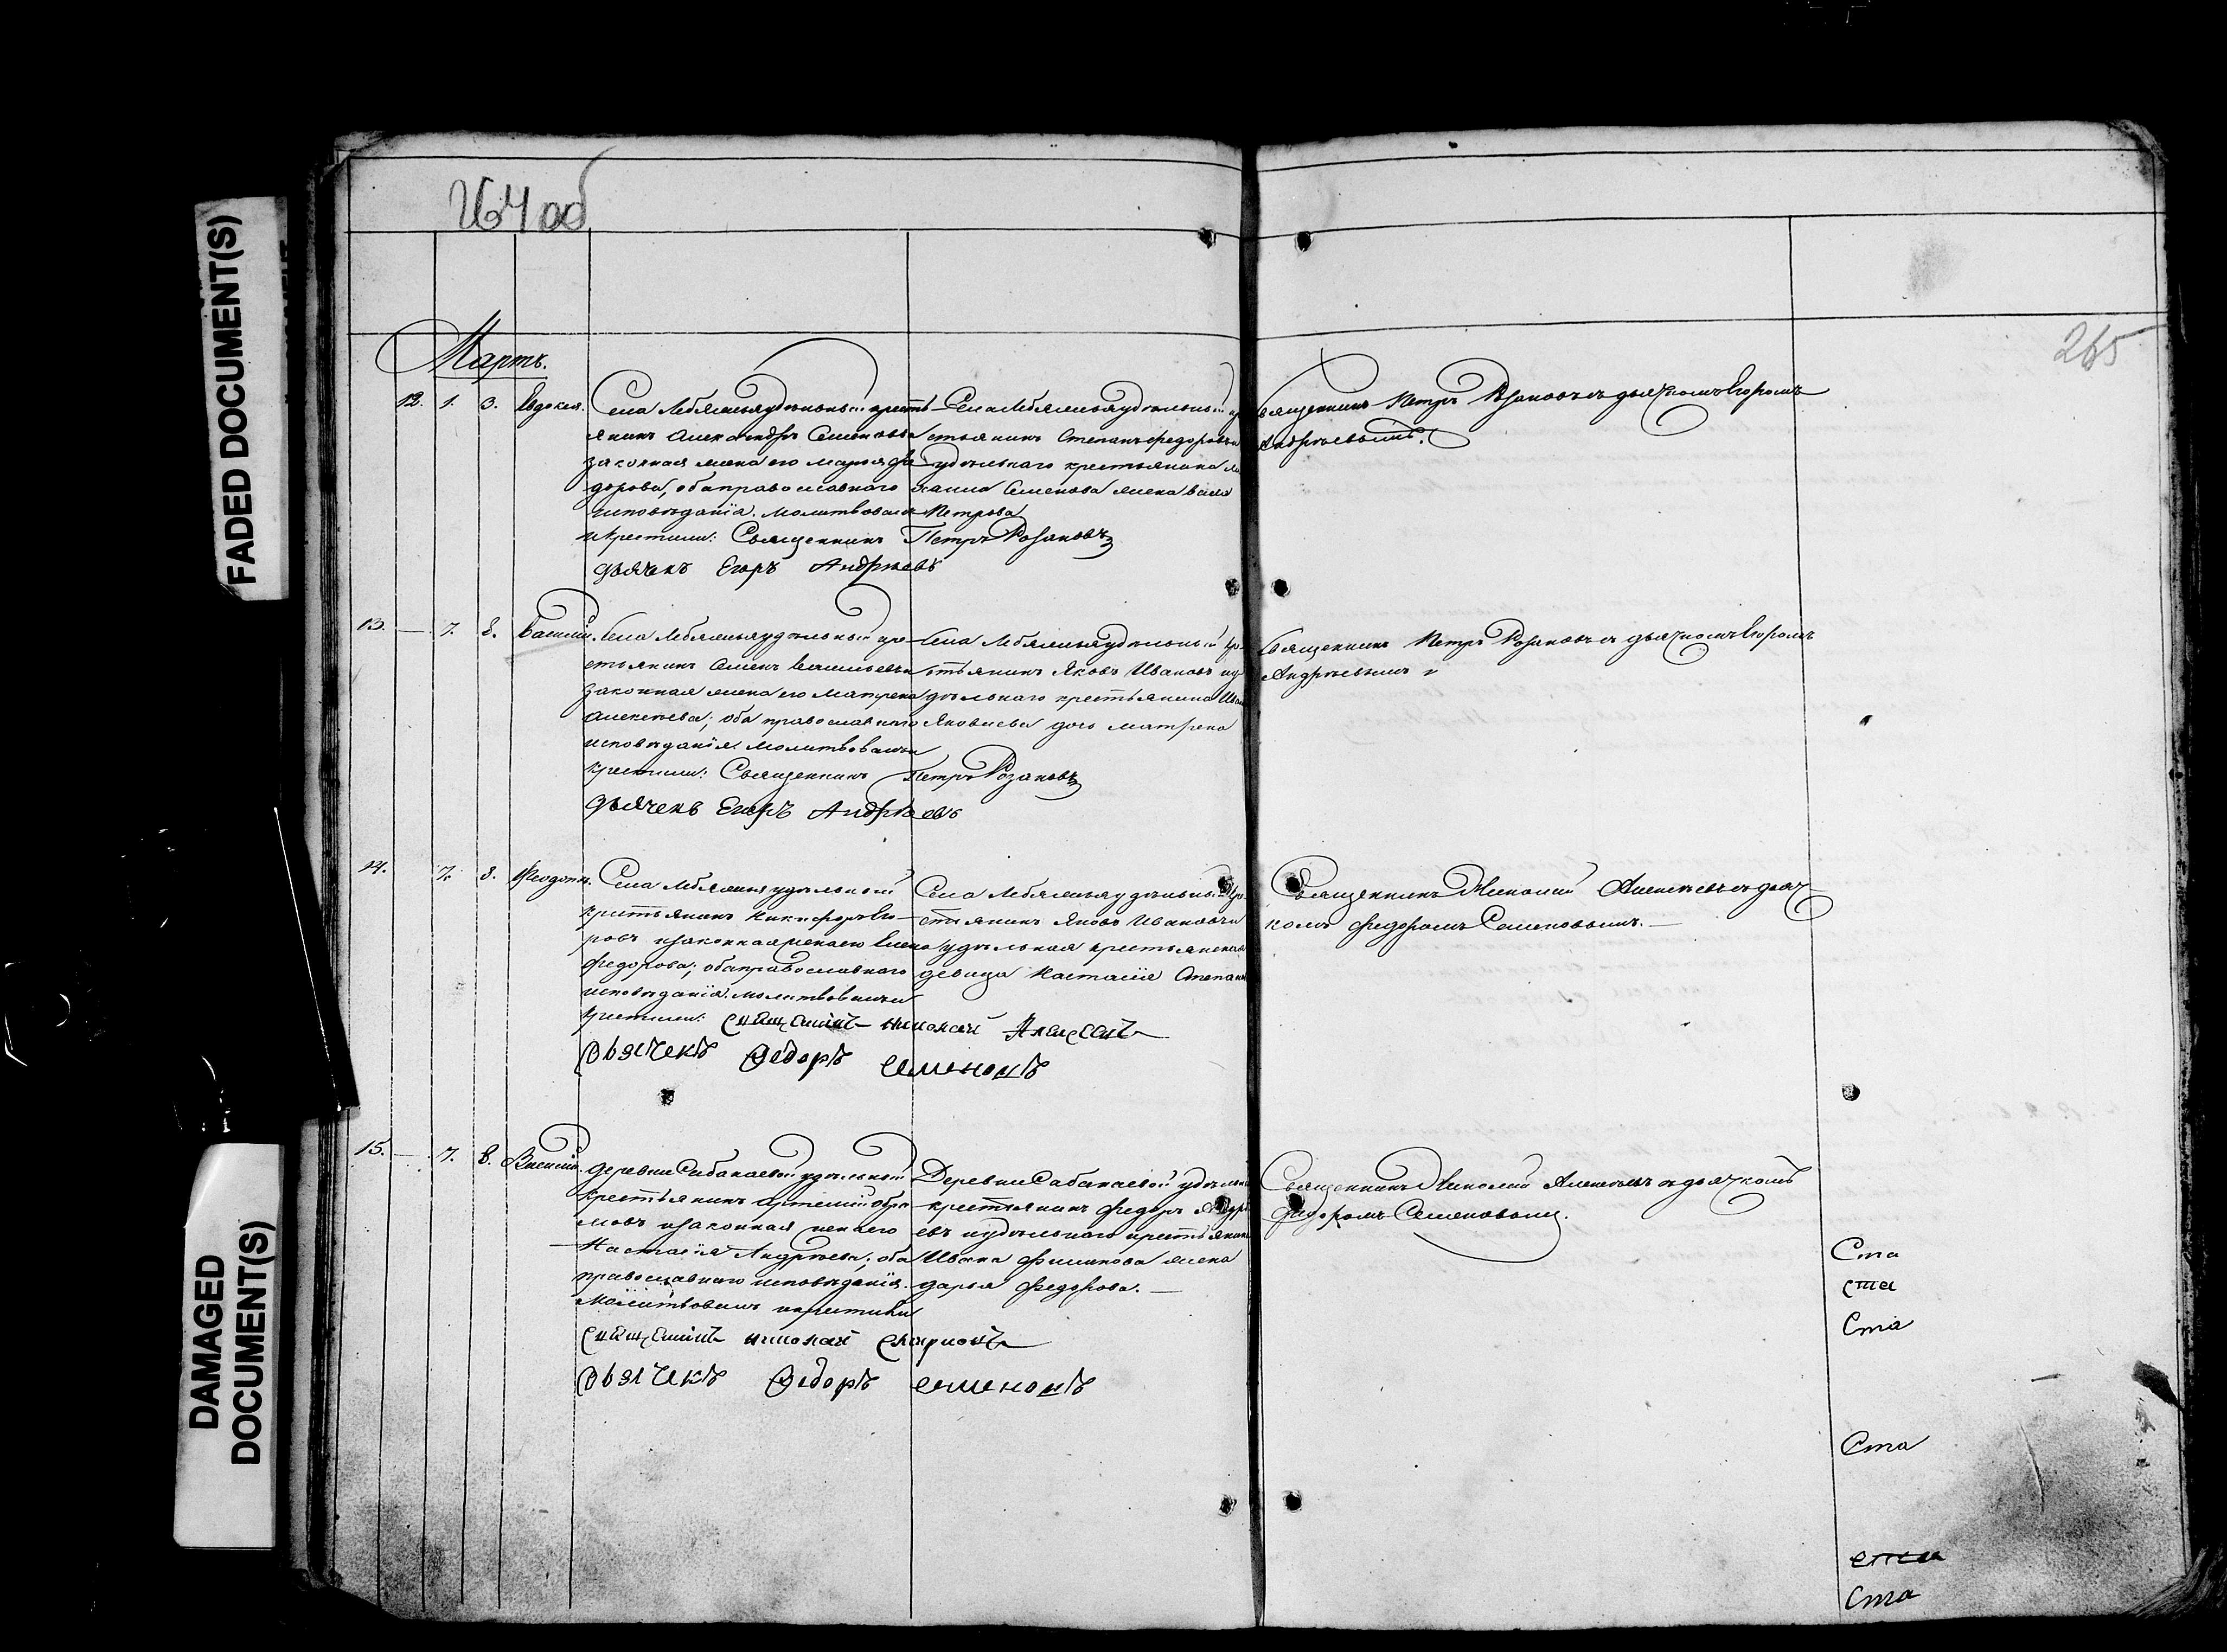 FADED DOCUMENT(S)
DAMAGED
DOCUMENT(S)
264об
265
Мартъ.
12. 1. 3. Евдокия.
Села Лебяжья удѣльный кресть-
янинъ Александръ Семеновъ и
законная жена его Марья Фе-
дорова, оба православнаго
исповѣданія. Молитвовали
и крестили: Священникъ Петръ Розановъ
дьячекъ Егоръ Андрѣевъ
Села Лебяжья удѣльный кре
стьянинъ Степанъ Федоровъ и
удѣльнаго крестьянина
Семенова жена
Петрова
Священникъ Петръ Розановъ съ дьячкомъ Егоромъ
Андрѣевымъ.
13. — 7. 8. Василий.
Села Лебяжья удѣльный кре-
стьянинъ Семенъ Васильевъ и
законная жена его Матрена
Алексѣева; оба православнаго
исповѣданія. Молитвовали и
крестили: Священникъ Петръ Розановъ
дьячекъ Егоръ Андрѣевъ
Села Лебяжья удѣльный кре-
стьянинъ Яковъ Ивановъ и у-
дѣльнаго крестьянина Ива
Яковлева дочь Матрена
Священникъ Петръ Розановъ съ дьячкомъ Егоромъ
Андрѣевымъ
14. 7. 8. Феодоръ.
Села Лебяжья удѣльный
крестьянинъ Никифоръ Его-
ровъ и законная жена его Елена
Федорова; оба православнаго
исповѣданія. Молитвовали и
крестили: Священникъ Николай Алексѣевъ
Дьячекъ Федоръ Семеновъ
Села Лебяжья удѣльный кре-
стьянинъ Яковъ Ивановъ и
удѣльная крестьянская
девица Настасія Степан
Священникъ Николай Алексѣевъ съ дьяч-
комъ Федоромъ Семеновымъ. —
15. — 7. 8. Василій.
Деревни Сабакаевой удѣльной
крестьянинъ Артемій Абра-
мовъ и законная жена его
Настасія Андрѣева; оба
православнаго исповѣданія.
Молитвовали и крестили
Священникъ Николай Смирновъ
Дьячекъ Федоръ Семеновъ
Деревни Сабакаевой удѣльный
крестьянинъ Федоръ Андрѣ
евъ и удѣльнаго крестьянина
Ивана Филипова жена
Дарья Федорова. —
Священникъ Николай Алексѣевъ съ дьячкомъ
Федоромъ Семеновымъ.
Ста
Ста
Ста
Ста
Ста
Ста